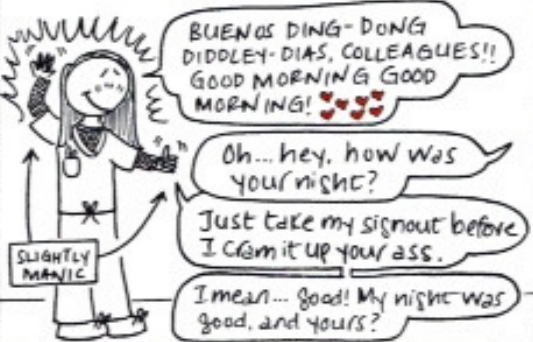 BUENOS DING-DONG
DIDDLEY-DIAS, COLLEAGUES!!
GOOD MORNING GOOD
MORNING!
Oh... hey, how was
your night?
Just take my signout before
I cram it up your ass.
SLIGHTLY
MANIC
I mean... good! My night was
good, and yours?